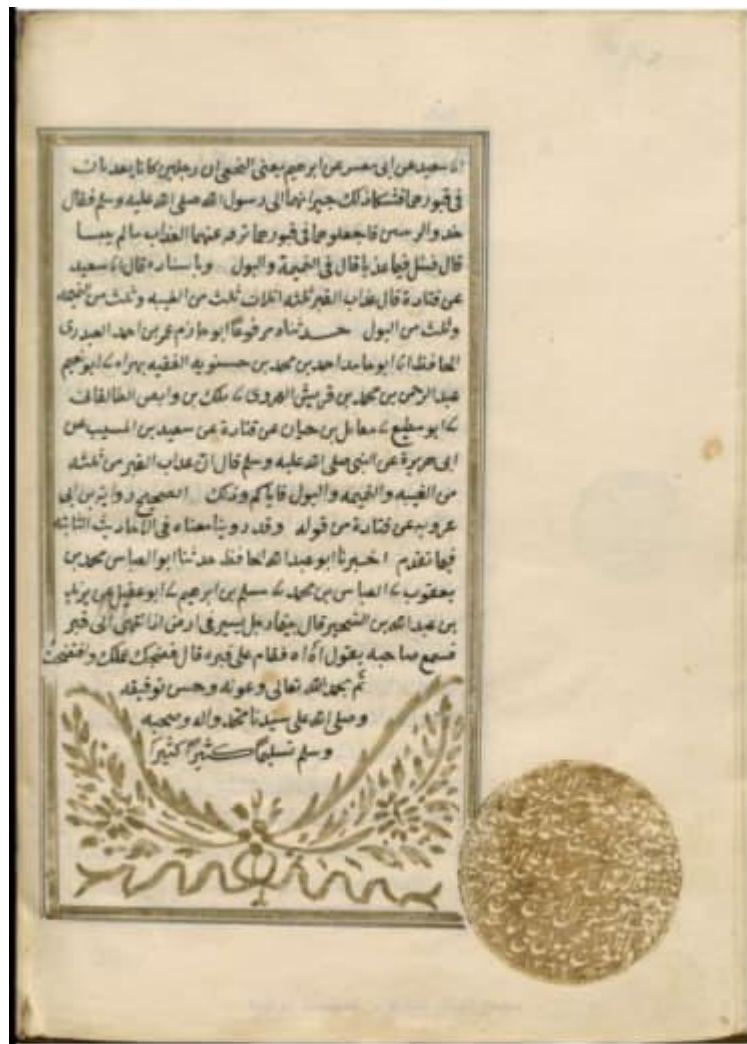 انا سعيد عن ابى معسر عن ابرهيم يعنى النخعى ان رجلين كانا يعذبان
فى قبورهما فشكا ذلك جيرانهما الى رسول الله صلى الله عليه وسلم فقال
خذوا كرسفين فاجعلوهما فى قبورهما ترفه عنهما العذاب مالم ييبسا
قال فسئل فيما عذبا قال فى النميمة والبول وباسناده قال انا سعيد
عن قتادة قال عذاب القبر ثلثه اثلاث ثلث من الغيبه وثلث من النميمه
وثلث من البول حدثناه مرفوعا ابو حازم عمر بن احمد العبدرى
الحافظ انا ابو حامد احمد بن محمد بن حسنويه الفقيه بهراه ثنا ابو نعيم
عبد الرحمن بن محمد بن قريش الهروى ثنا ملك بن وابص الطالقانى
ثنا ابو مطيع ثنا مقاتل بن حيان عن قتادة عن سعيد بن المسيب عن
ابى هريرة عن النبى صلى الله عليه وسلم قال ان عذاب القبر من ثلثه
من الغيبه والنميمه والبول فاياكم وذلك الصحيح رواية بن ابى
عروبه عن قتادة من قوله وقد روينا معناه فى الاحاديث الثابته
فيما تقدم اخبرنا ابو عبد الله الحافظ حدثنا ابو العباس محمد بن
يعقوب ثنا العباس بن محمد ثنا مسلم بن ابرهيم ثنا ابو عقيل عن يزيد
بن عبد الله بن الشخير قال بينما رجل يسير فى ارض اذا انتهى الى قبر
فسمع صاحبه يقول اه اه فقام على قبره قال فضحك عملك وافتضحت
تم بحمد الله تعالى وعونه وحسن توفيقه
وصلى الله على سيدنا محمد واله وصحبه
وسلم تسليما كثيرا كثيرا